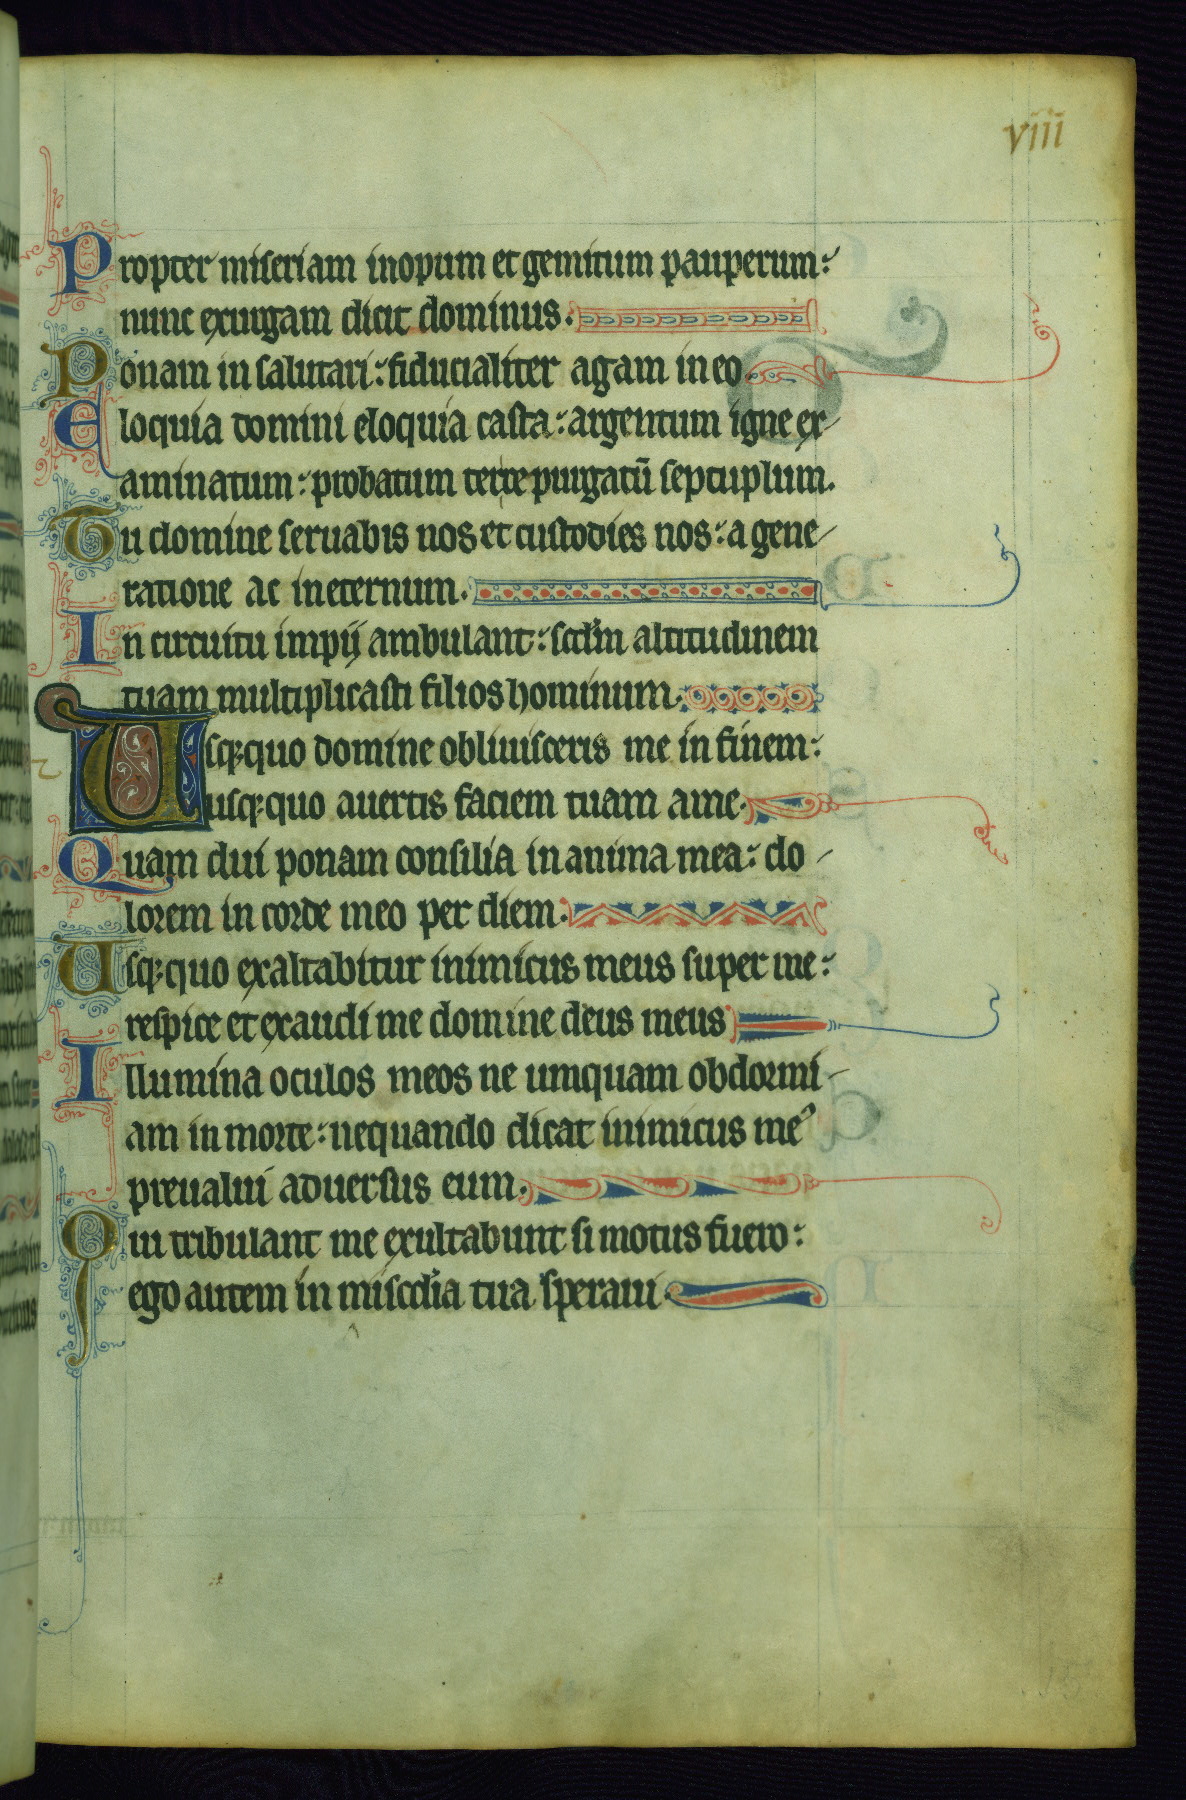 viii
Propter miseriam inopum et gemitum pauperum:
nunc exurgam dicit dominus.
Ponam in salutari: fiducialiter agam in eo
Eloquia domini eloquia casta: argentum igne ex
aminatum: probatum terre purgatū septuplum.
Tu domine seruabis nos et custodies nos: a gene
ratione ac in eternum.
In circuitu impij ambulant: scd̄m altitudinem
tuam multiplicasti filios hominum.
Usqꝫquo domine obliuisceris me in finem:
usqꝫquo auertis faciem tuam a me.
Quam diu ponam consilia in anima mea: do
lorem in corde meo per diem.
Usqꝫquo exaltabitur inimicus meus super me:
respice et exaudi me domine deus meus
Illumina oculos meos ne umquam obdormi
am in morte: nequando dicat inimicus meꝰ
preualui aduersus eum.
Qui tribulant me exultabunt si motus fuero:
ego autem in mis̄cd̄ia tua speraui.
15